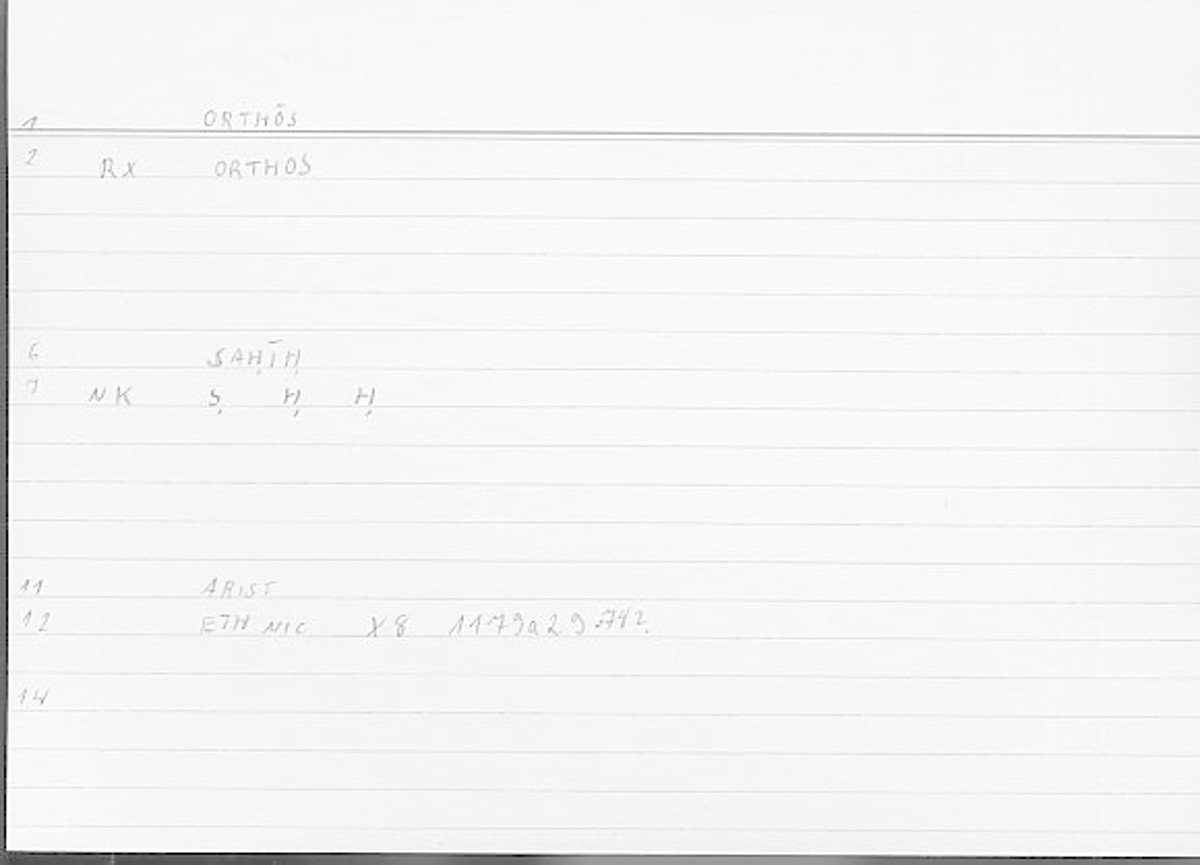 1 ORTHŌS
2 RX ORTHOS
6 ṢAḤĪḤ
7 NK Ṣ Ḥ Ḥ
11 ARIST
12 ETH NIC X8 1179a29
14